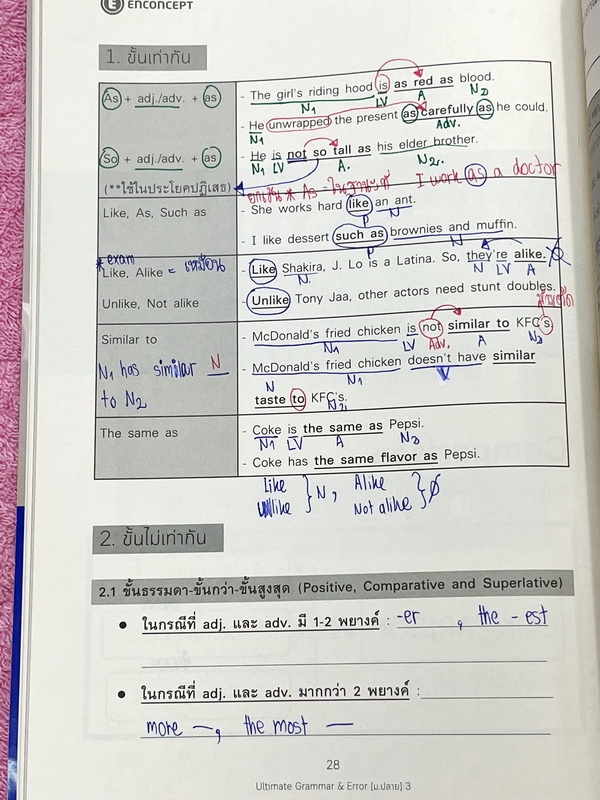 E ENCONCEPT
1. ขั้นเท่ากัน
As + adj./adv. + as
- The girl's riding hood is as red as blood.
N₁ LV A N₂
- He unwrapped the present as carefully as he could.
N₁ Adv.
So + adj./adv. + as
- He is not so tall as his elder brother.
N₁ LV A. N₂.
(**ใช้ในประโยคปฏิเสธ)
* As - ในฐานะที่ I work as a doctor
Like, As, Such as
- She works hard like an ant.
P N
- I like dessert such as brownies and muffin.
P N
*exam
Like, Alike = เหมือน
- Like Shakira, J. Lo is a Latina. So, they're alike.
N. N LV A
Unlike, Not alike
- Unlike Tony Jaa, other actors need stunt doubles.
Similar to
- McDonald's fried chicken is not similar to KFC's.
N₁ LV Adv. A N₂
N₁ has similar N
to N₂
- McDonald's fried chicken doesn't have similar
N₁ V
N
taste to KFC's.
N₂
The same as
- Coke is the same as Pepsi.
N₁ LV A N₂
- Coke has the same flavor as Pepsi.
Like
Unlike } N , Alike
Not alike } Ø
2. ขั้นไม่เท่ากัน
2.1 ขั้นธรรมดา-ขั้นกว่า-ขั้นสูงสุด (Positive, Comparative and Superlative)
• ในกรณีที่ adj. และ adv. มี 1-2 พยางค์ : -er , the - est
• ในกรณีที่ adj. และ adv. มากกว่า 2 พยางค์ :
more —, the most —
28
Ultimate Grammar & Error [ม.ปลาย] 3